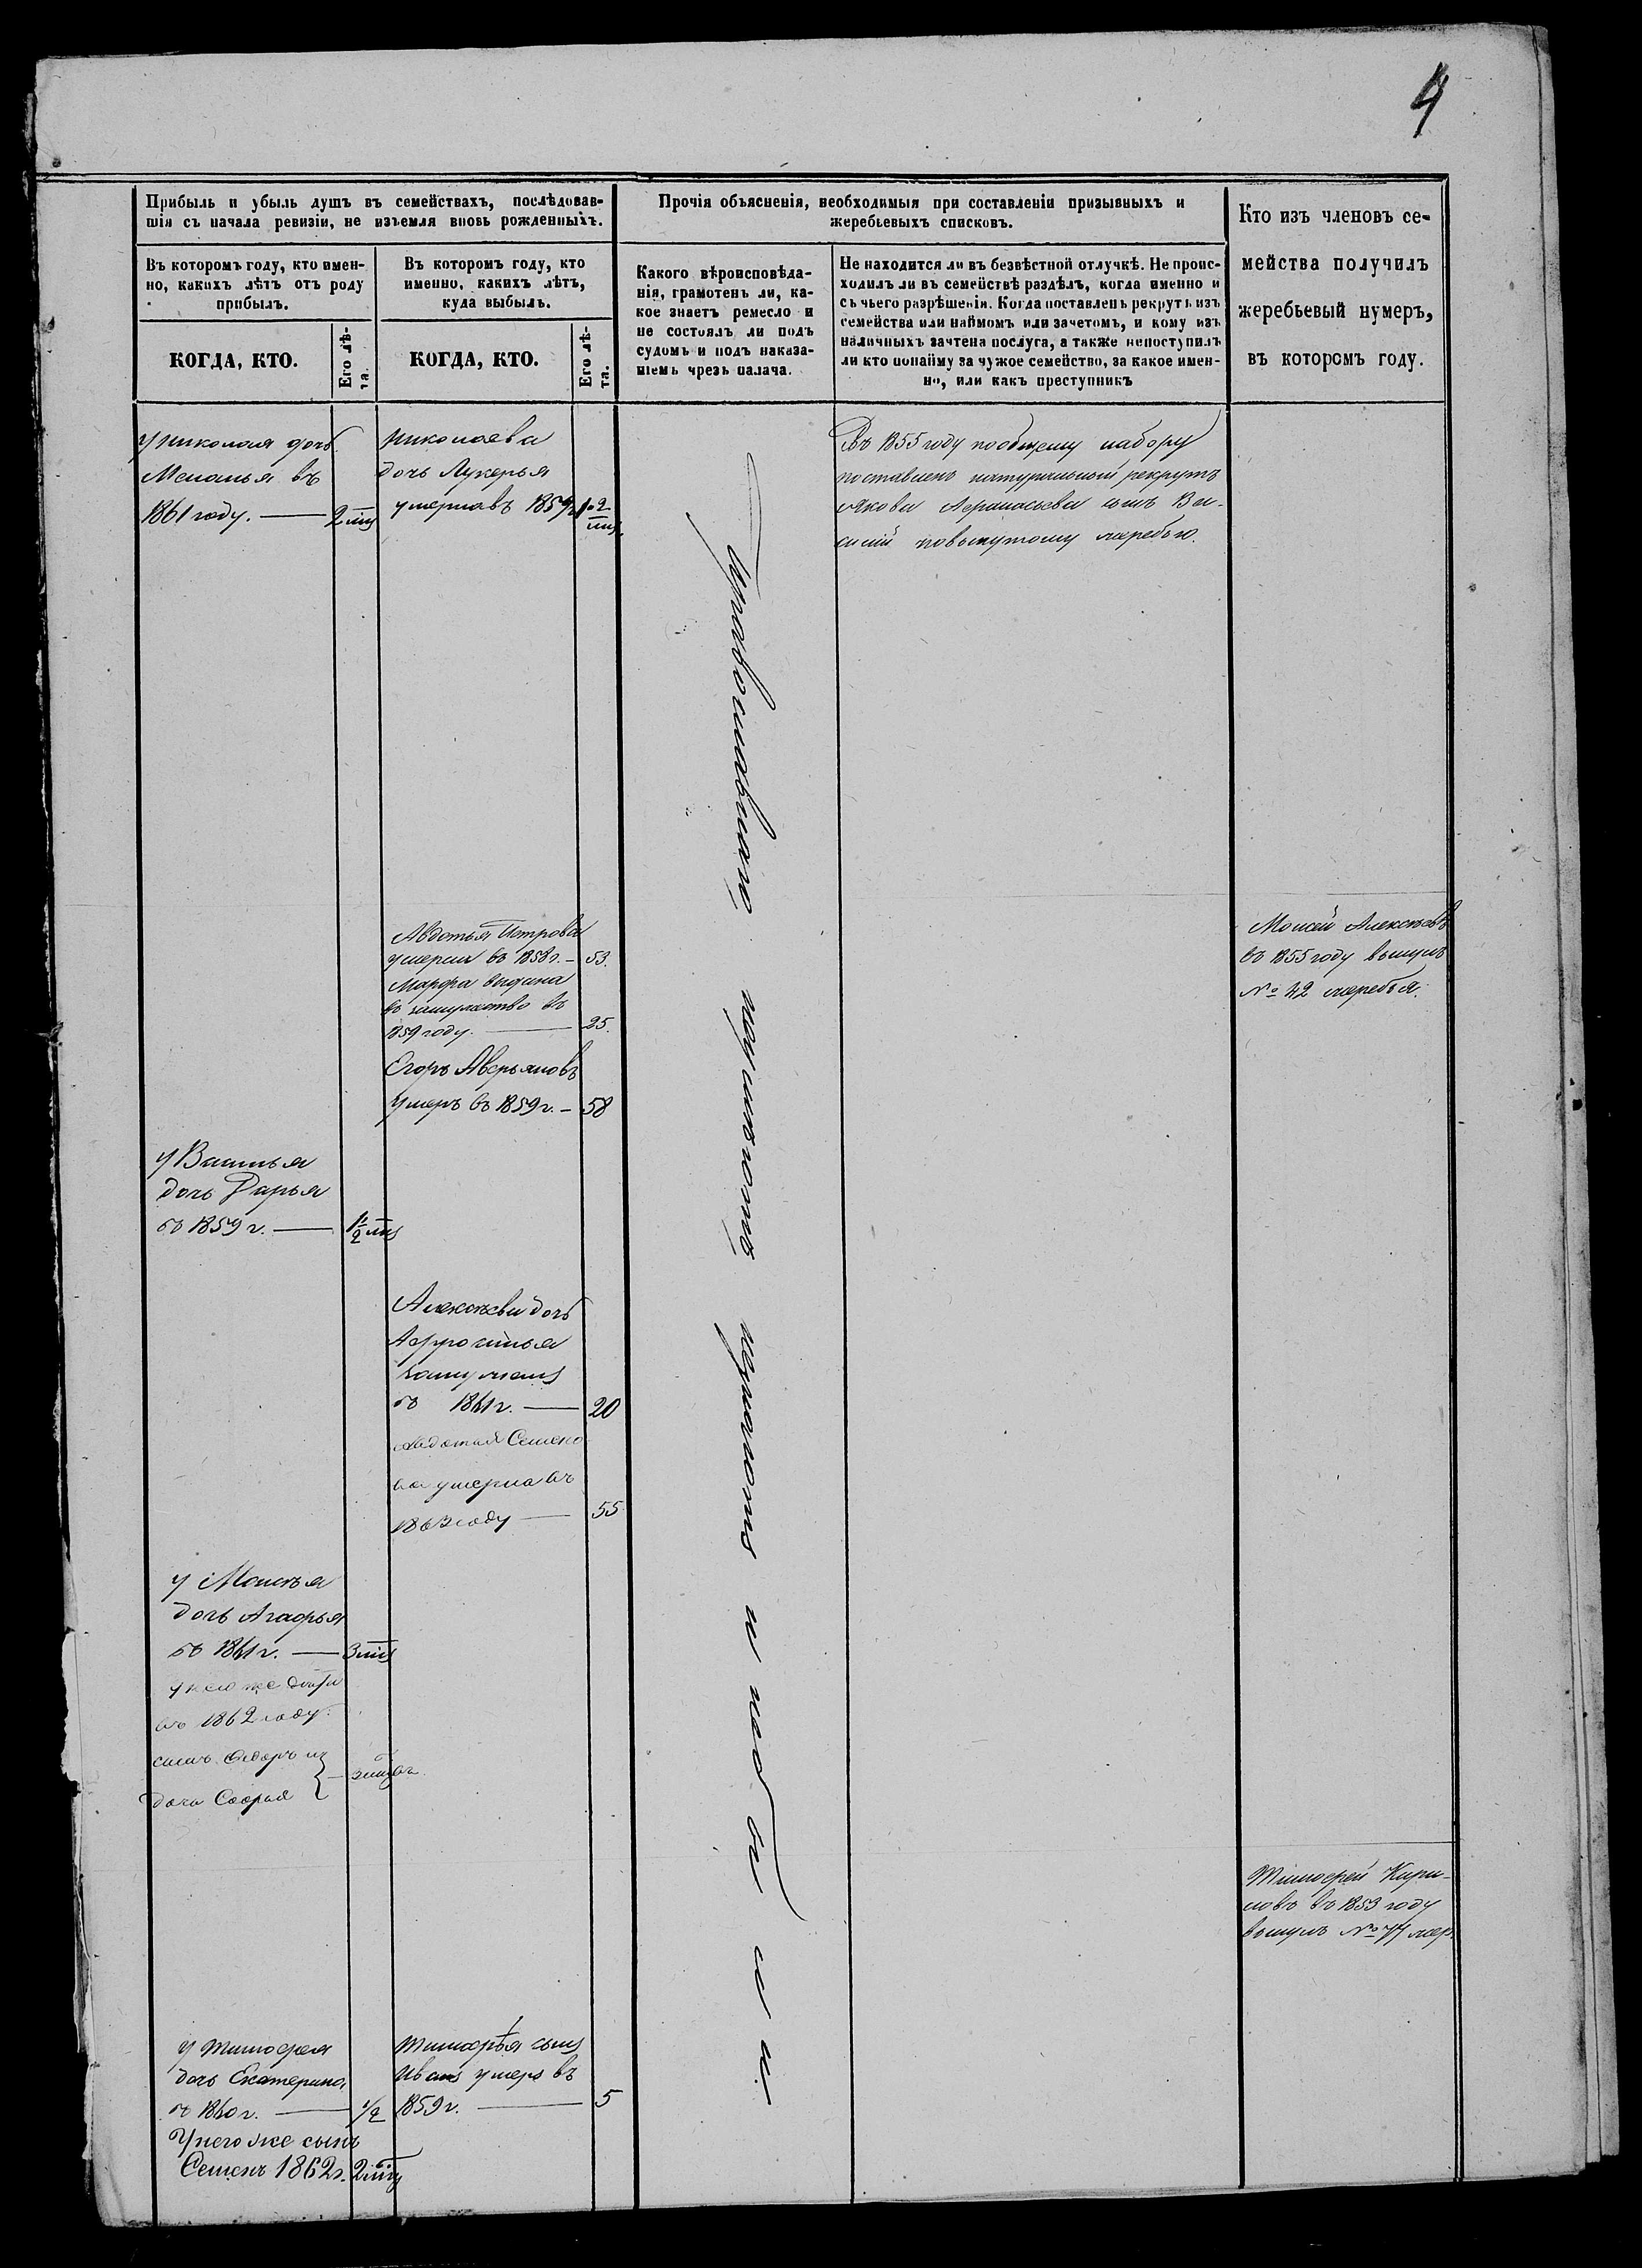 4
Прибыль и убыль душъ въ семействахъ, послѣдовав-
шія съ начала ревизіи, не изъемля вновь рожденныхъ.
Въ которомъ году, кто имен-
но, какихъ лѣтъ отъ роду
прибылъ.
КОГДА, КТО.
Его лѣ-
та.
Въ которомъ году, кто
именно, какихъ лѣтъ,
куда выбылъ.
КОГДА, КТО.
Его лѣ-
та.
Прочія объясненія, необходимыя при составленіи призывныхъ и
жеребьевыхъ списковъ.
Какого вѣроисповѣда-
нія, грамотенъ ли, ка-
кое знаетъ ремесло и
не состоялъ ли подъ
судомъ и подъ наказа-
ніемъ чрезъ палача.
Не находится ли въ безвѣстной отлучкѣ. Не проис-
ходилъ ли въ семействѣ раздѣлъ, когда именно и
съ чьего разрѣшенія. Когда поставленъ рекрутъ изъ
семейства или наймомъ или зачетомъ, и кому изъ
наличныхъ зачтена послуга, а также непоступилъ
ли кто понайму за чужое семейство, за какое имен-
но, или какъ преступникъ
Кто изъ членовъ се-
мейства получилъ
жеребьевый нумеръ,
въ которомъ году.
у николая дочь
Меланья въ
1861 году. — 2
николаева
дочь Лукерья
умерла въ 1859
Въ 1855 году по общему набору
поставленъ натуральной рекрутъ
Якова Афанасьева сынъ Ва-
силій по вынутому жеребью.
Авдотья Петрова
умерла въ 1858 г. — 53.
Марфа выдана
въ замужество въ
1859 году. — 25.
Егоръ Аверьяновъ
умеръ въ 1859 г. — 58
Моисей Алексѣевъ
въ 1855 году вынулъ
№ 42 жеребья.
у Василья
дочь Дарья
въ 1859 г. — 1/2
Алексѣева дочь
Афросинья
замужемъ
въ 1861 г. — 20
Авдотья Семено
ва умерла въ
1863 году — 55
у Моисѣя
дочь Агафья
въ 1861 г. — 3
у него же дѣти
въ 1862 году.
сынъ Ѳедоръ и
дочь Софья — 3
Тимофей Кири-
ловъ въ 1853 году
вынулъ № 77 жер.
у Тимофея
дочь Екатерина
въ 1860 г. — 1/2
У него же сынъ
Семенъ 1862 г. 2
Тимофѣя сынъ
Иванъ умеръ въ
1859 г. — 5